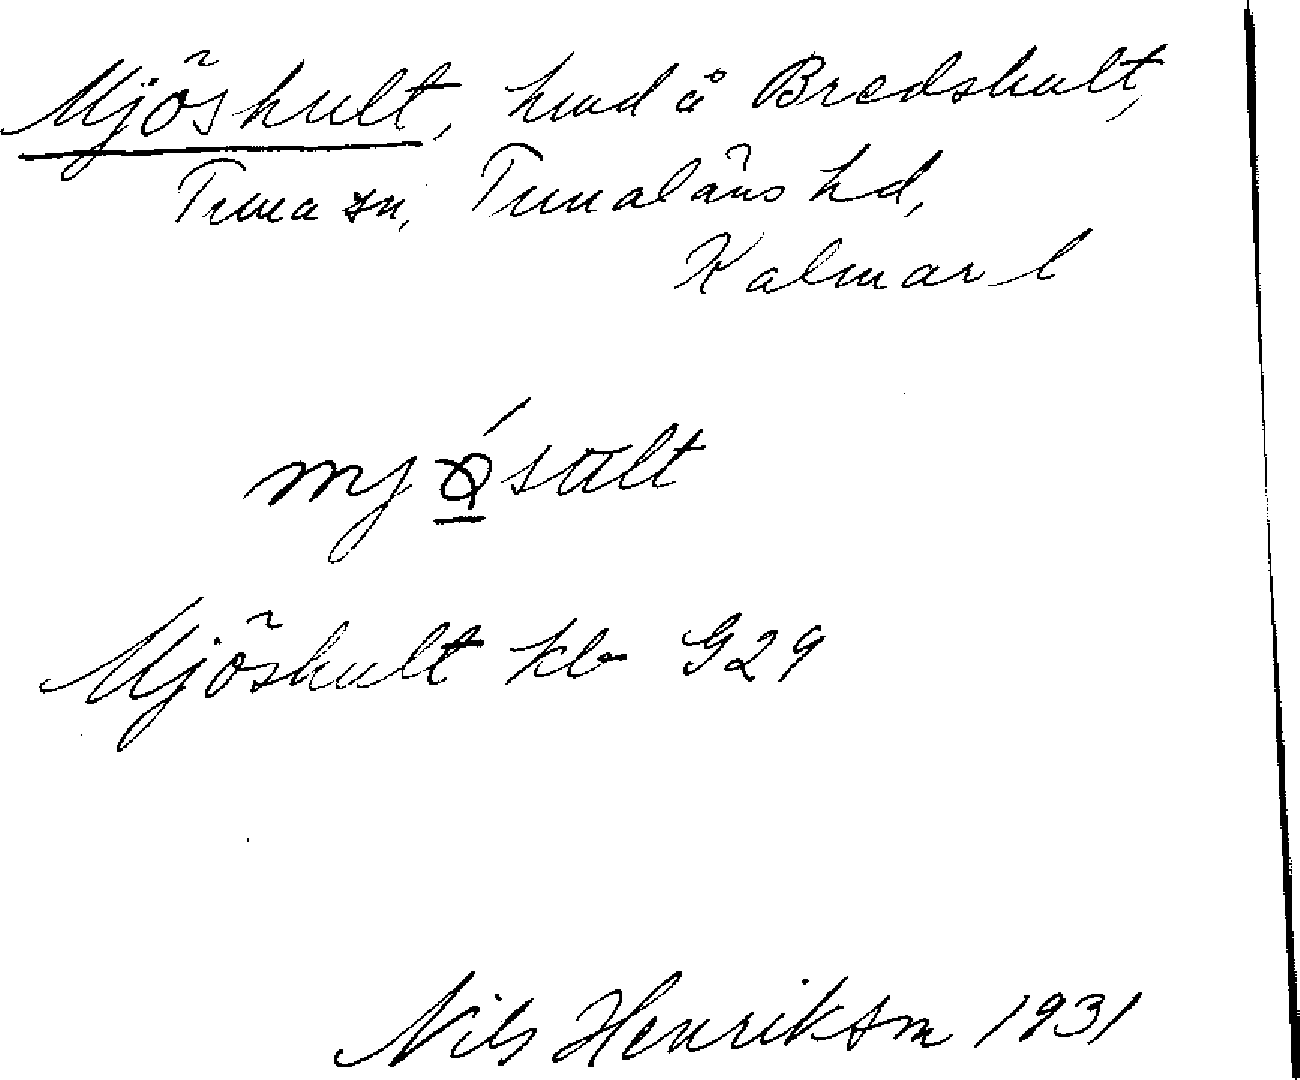 Mjöshult, hmd å Bredshult,
Tuna sn, Tunaläns hd,
Kalmar l
Mjöshult kb G29
Nils Henrikson 1931